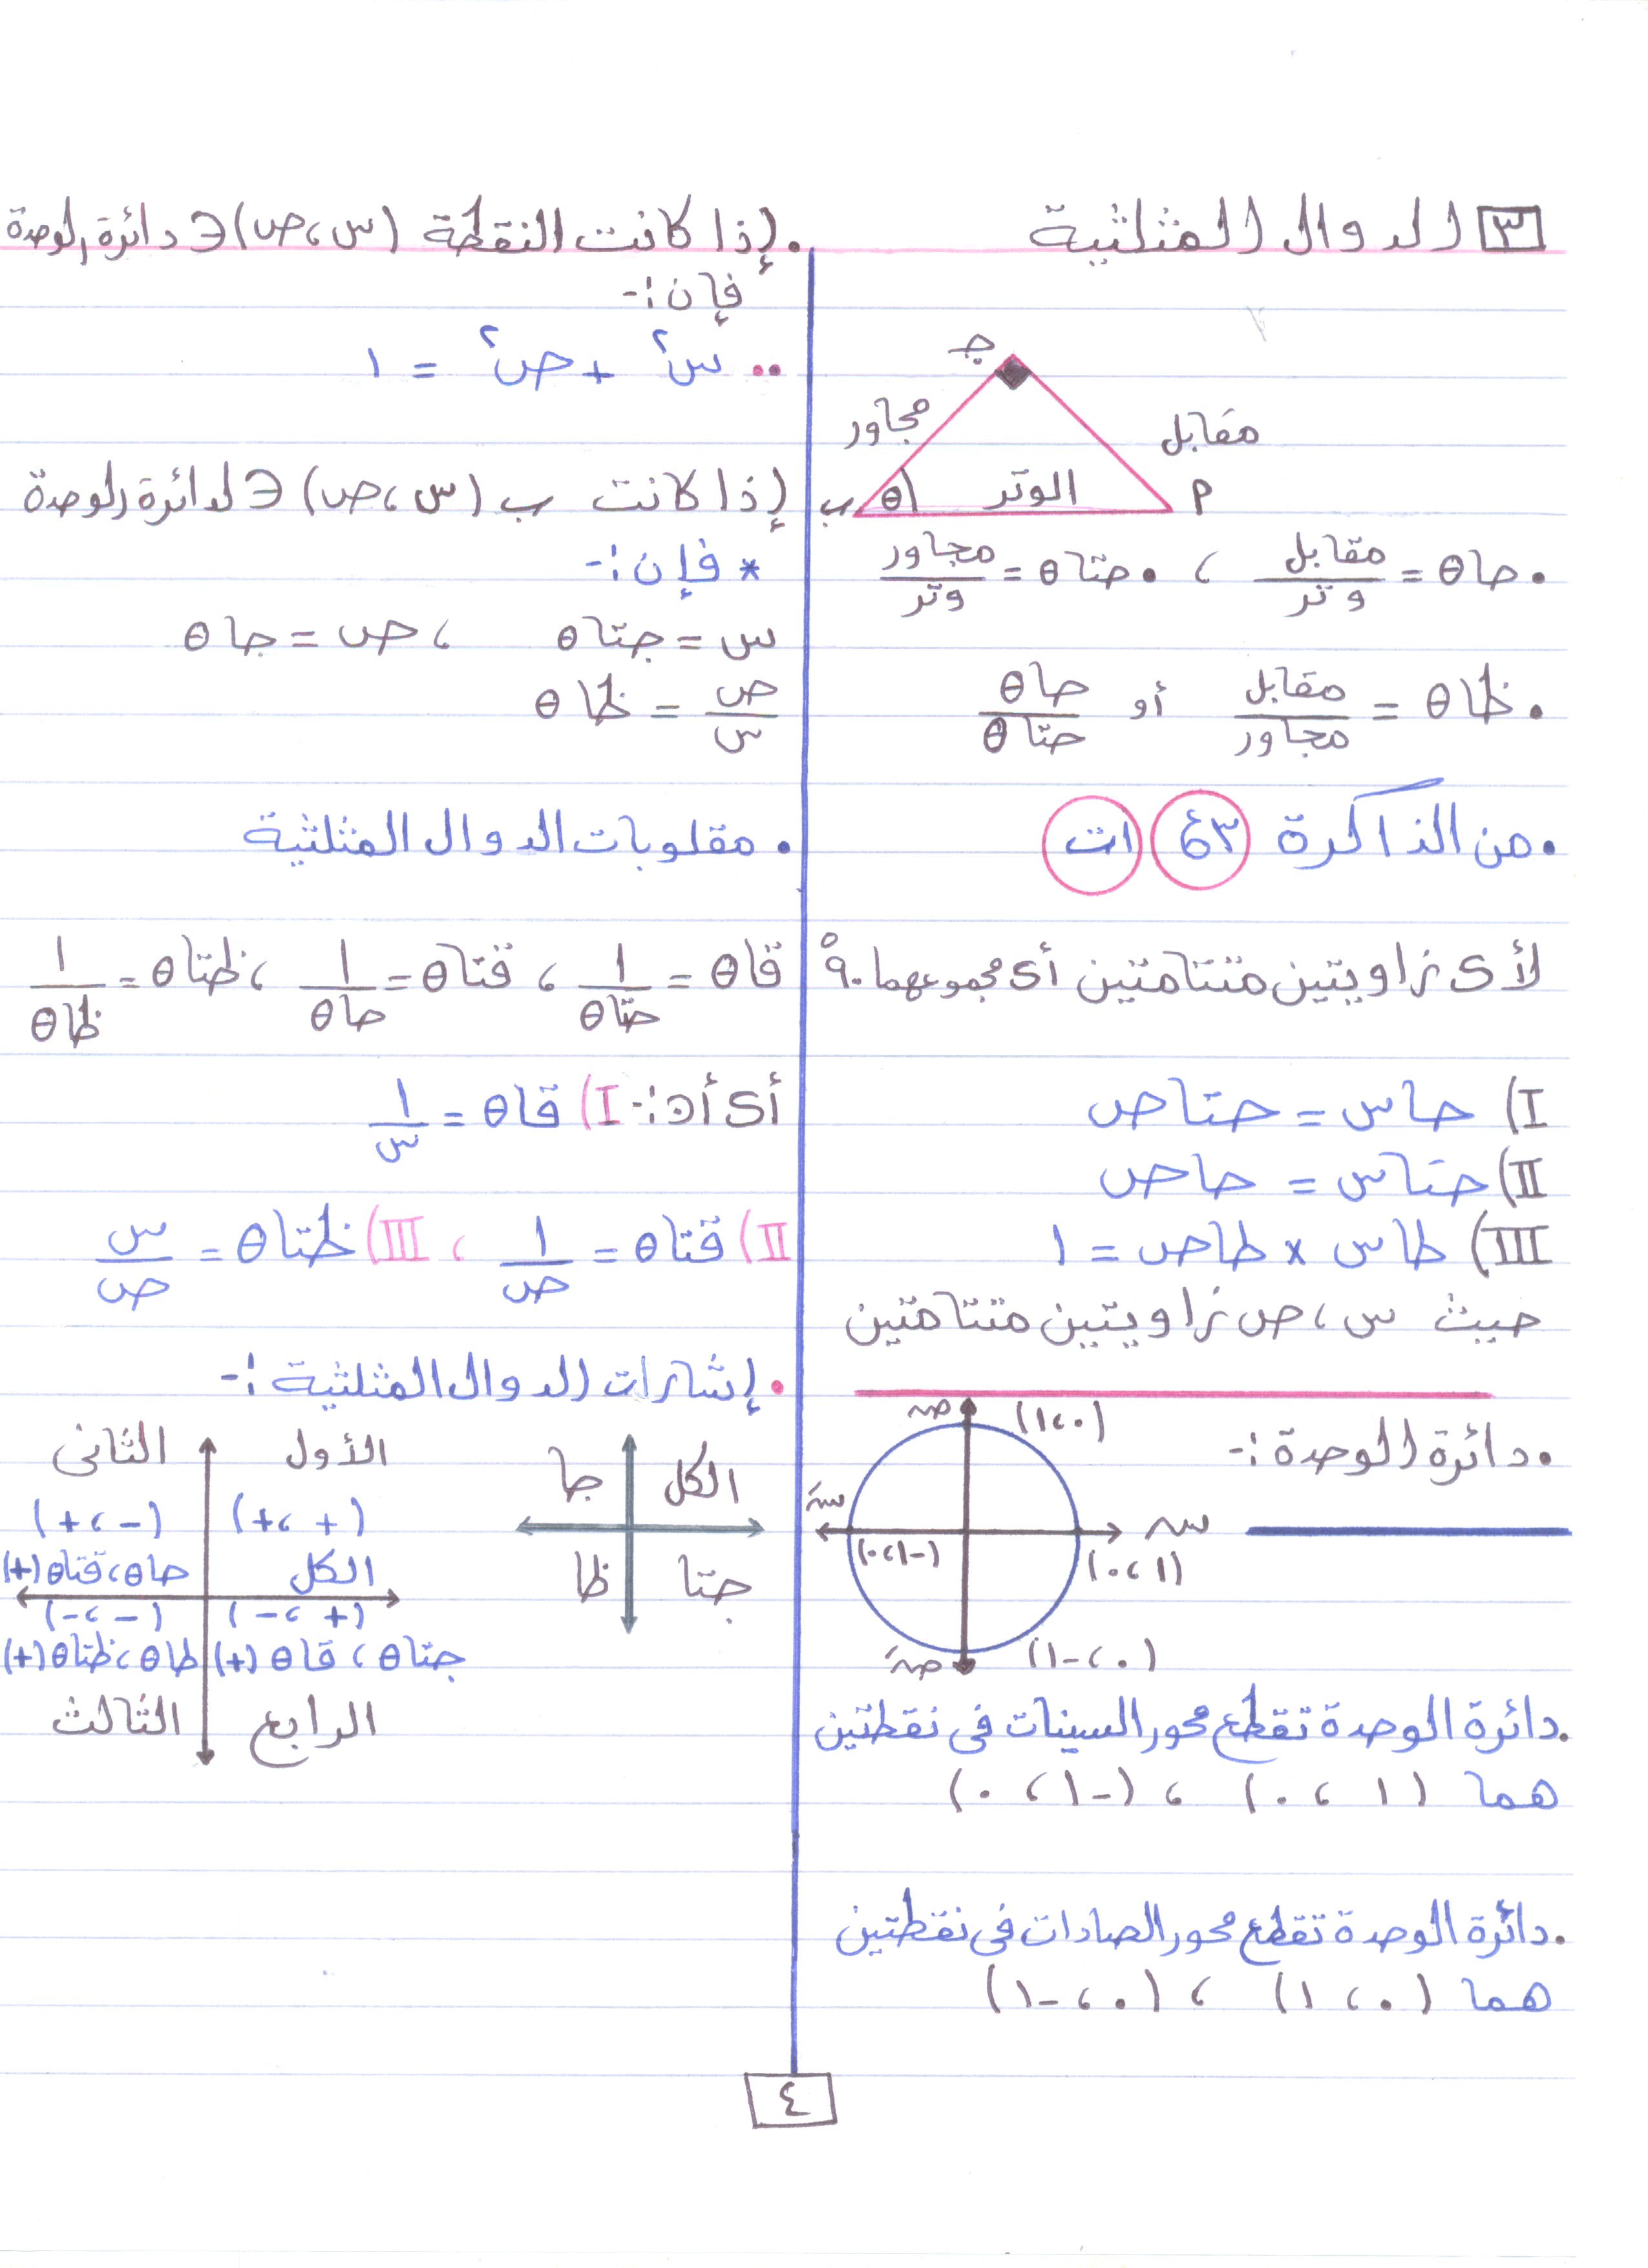 ٣ الدوال المثلثية
جـ
مجاور
مقابل
ب
θ
الوتر
P
• حاθ = مقابل / وتر ، • حتاθ = مجاور / وتر
• ظاθ = مقابل / مجاور أو حاθ / حتاθ
• من الذاكرة
ات
لأى زاويتين متتامتين أى مجموعهما ٩٠°
I) حاس = حتاص
II) حتاس = حاص
III) طاس × طاص = ١
حيث س ، ص زاويتين متتامتين
• دائرة الوحدة :-
صـ
(٠،١)
سـَ
سـ
(-١،٠)
(١،٠)
صـَ
(٠،-١)
• دائرة الوحدة تقطع محور السينات فى نقطتين
هما (١ ، ٠) ، (-١ ، ٠)
• دائرة الوحدة تقطع محور الصادات فى نقطتين
هما (٠ ، ١) ، (٠ ، -١)
• إذا كانت النقطة (س،ص) ∈ دائرة الوحدة
فإن :-
•• س٢ + ص٢ = ١
إذا كانت ب (س،ص) ∈ لدائرة الوحدة
* فإن :-
س = جتاθ ، ص = جاθ
ص / س = ظاθ
• مقلوبات الدوال المثلثية
قاθ = ١ / حتاθ ، قتاθ = ١ / حاθ ، ظتاθ = ١ / ظاθ
أى أن :- I) قاθ = ١ / س
II) قتاθ = ١ / ص ، III) ظتاθ = س / ص
• إشارات الدوال المثلثية :-
الكل
جا
جتا
ظا
الأول
الثانى
(+ ،+)
(- ،+)
الكل
حاθ ، قتاθ (+)
(+ ،-)
(- ،-)
جتاθ ، قاθ (+)
طاθ ، ظتاθ (+)
الرابع
الثالث
٤